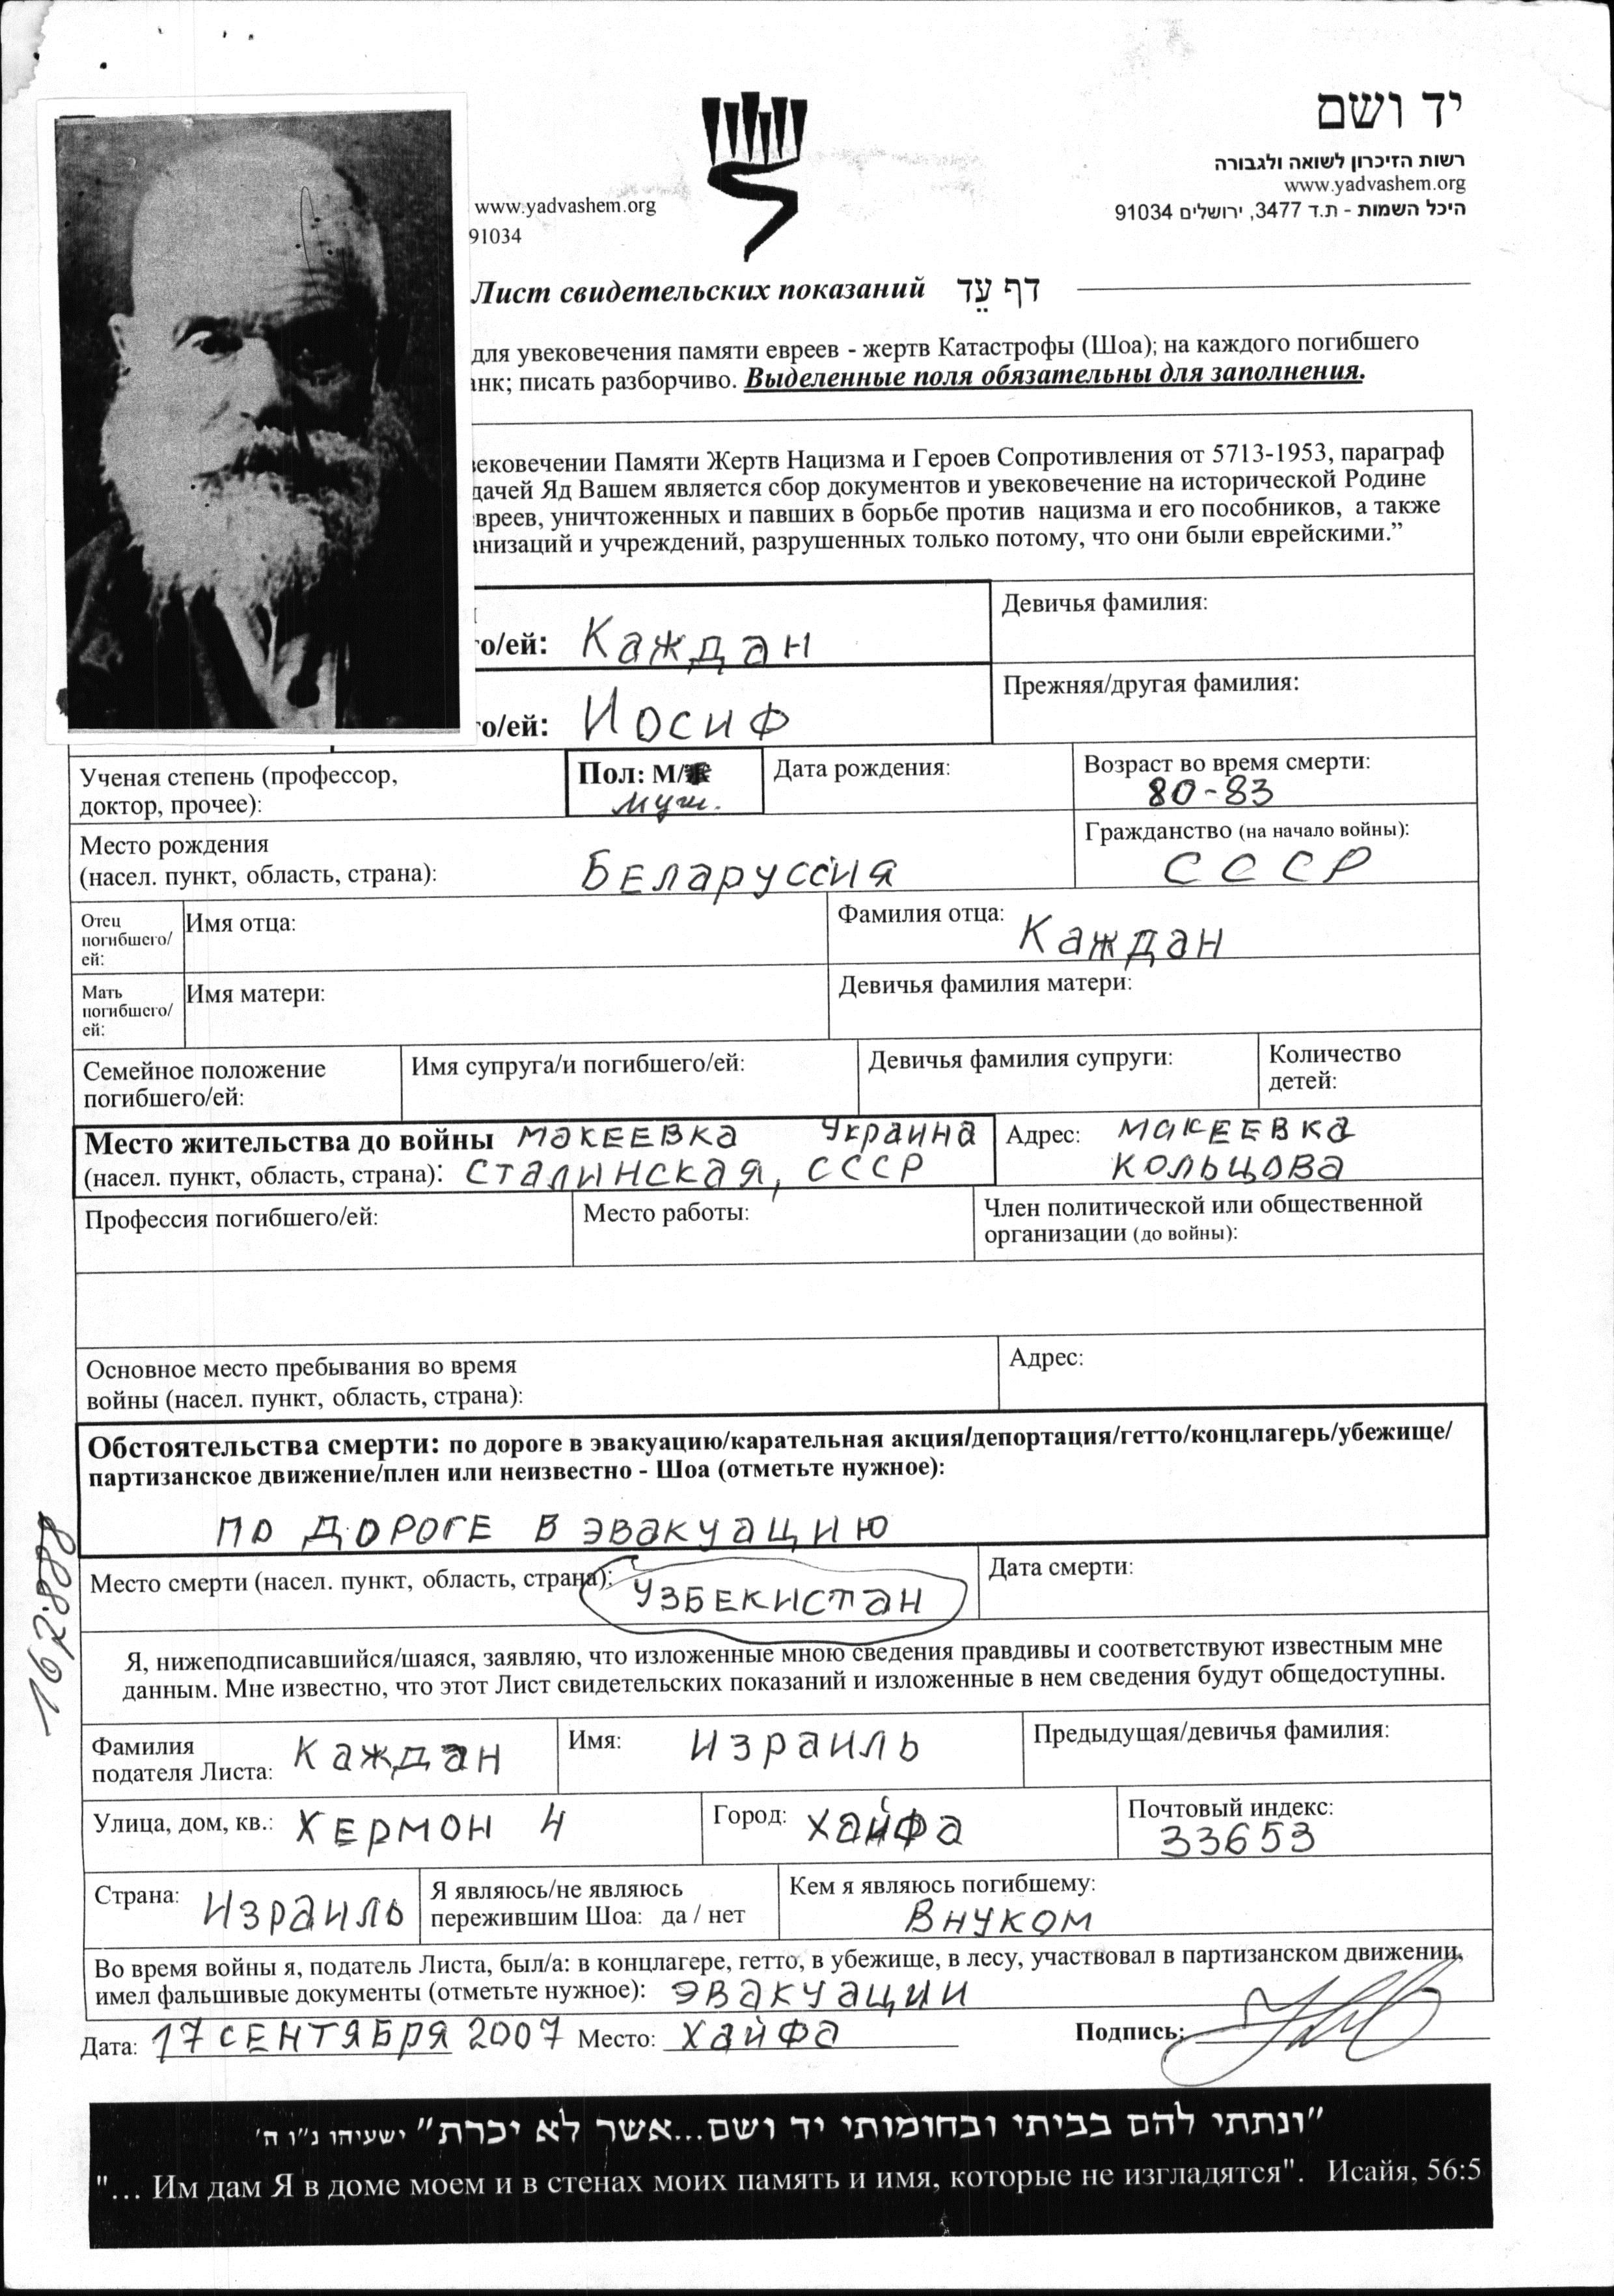 יד ושם
רשות הזיכרון לשואה ולגבורה
www.yadvashem.org
היכל השמות - ת.ד 3477, ירושלים 91034
www.yadvashem.org
91034
Лист свидетельских показаний דף עֵד
для увековечения памяти евреев - жертв Катастрофы (Шоа); на каждого погибшего
анк; писать разборчиво. Выделенные поля обязательны для заполнения.
вековечении Памяти Жертв Нацизма и Героев Сопротивления от 5713-1953, параграф
дачей Яд Вашем является сбор документов и увековечение на исторической Родине
евреев, уничтоженных и павших в борьбе против нацизма и его пособников, а также
анизаций и учреждений, разрушенных только потому, что они были еврейскими.”
го/ей: Каждан
Девичья фамилия:
го/ей: Иосиф
Прежняя/другая фамилия:
Ученая степень (профессор,
доктор, прочее):
Пол: М/
муж.
Дата рождения:
Возраст во время смерти:
80-83
Место рождения
(насел. пункт, область, страна): Беларуссия
Гражданство (на начало войны):
СССР
Отец
погибшего/
ей:
Имя отца:
Фамилия отца: Каждан
Мать
погибшего/
ей:
Имя матери:
Девичья фамилия матери:
Семейное положение
погибшего/ей:
Имя супруга/и погибшего/ей:
Девичья фамилия супруги:
Количество
детей:
Место жительства до войны Макеевка Украина
(насел. пункт, область, страна): Сталинская, СССР
Адрес: Макеевка
Кольцова
Профессия погибшего/ей:
Место работы:
Член политической или общественной
организации (до войны):
Основное место пребывания во время
войны (насел. пункт, область, страна):
Адрес:
Обстоятельства смерти: по дороге в эвакуацию/карательная акция/депортация/гетто/концлагерь/убежище/
партизанское движение/плен или неизвестно - Шоа (отметьте нужное):
по дороге в эвакуацию
Место смерти (насел. пункт, область, страна): Узбекистан
Дата смерти:
162888
Я, нижеподписавшийся/шаяся, заявляю, что изложенные мною сведения правдивы и соответствуют известным мне
данным. Мне известно, что этот Лист свидетельских показаний и изложенные в нем сведения будут общедоступны.
Фамилия
подателя Листа: Каждан
Имя: Израиль
Предыдущая/девичья фамилия:
Улица, дом, кв.: Хермон 4
Город: Хайфа
Почтовый индекс:
33653
Страна: Израиль
Я являюсь/не являюсь
пережившим Шоа: да / нет
Кем я являюсь погибшему:
Внуком
Во время войны я, податель Листа, был/а: в концлагере, гетто, в убежище, в лесу, участвовал в партизанском движении,
имел фальшивые документы (отметьте нужное): эвакуации
Дата: 17 сентября 2007 Место: Хайфа Подпись:
"ונתתי להם בביתי ובחומותי יד ושם...אשר לא יכרת" ישעיהו נ"ו ה'
"... Им дам Я в доме моем и в стенах моих память и имя, которые не изгладятся". Исайя, 56:5